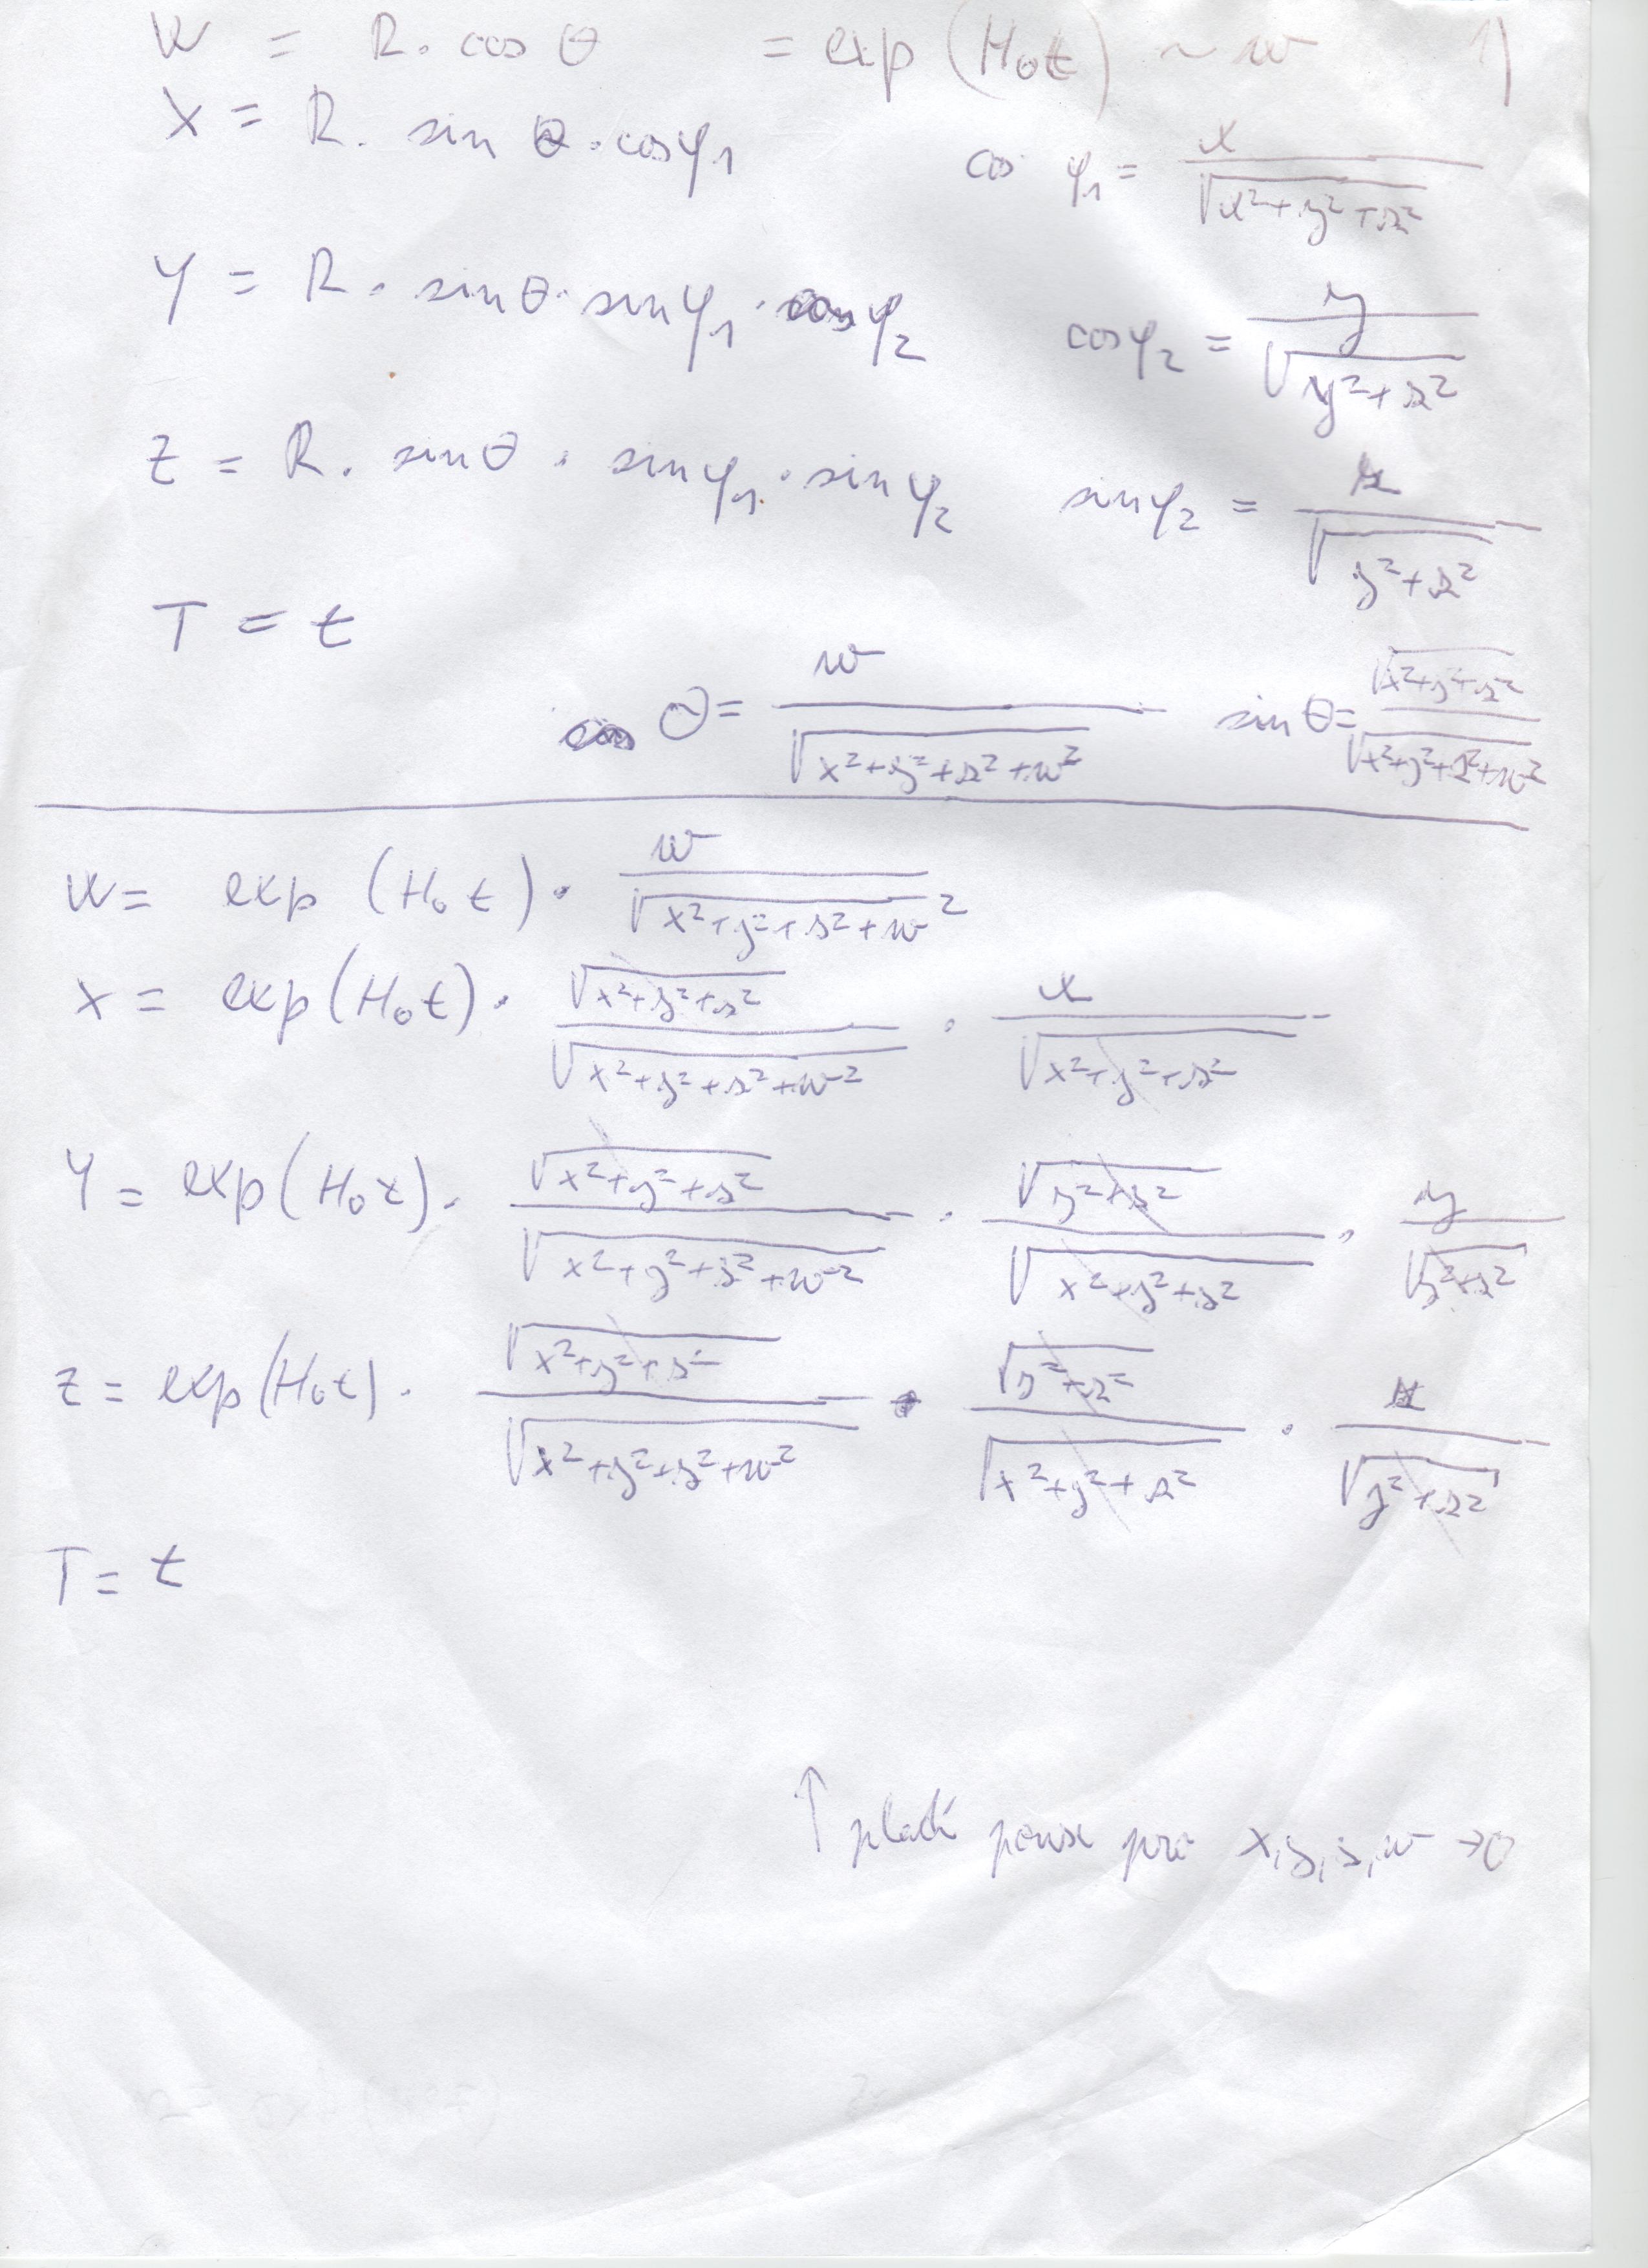 W = R. cos θ = exp (H₀t) ~ w 1)
X = R. sin θ . cosφ₁ cos φ₁ = x / √(x²+y²+z²)
Y = R . sinθ . sinφ₁ . cosφ₂ cosφ₂ = y / √(y²+z²)
Z = R. sinθ . sinφ₁ . sinφ₂ sinφ₂ = z / √(y²+z²)
T = t
cos θ = w / √(x²+y²+z²+w²) sin θ = √(x²+y²+z²) / √(x²+y²+z²+w²)
W = exp (H₀t) . w / √(x²+y²+z²+w²)
X = exp(H₀t) . √(x²+y²+z²) / √(x²+y²+z²+w²) . x / √(x²+y²+z²)
Y = exp(H₀t) . √(x²+y²+z²) / √(x²+y²+z²+w²) . √(y²+z²) / √(x²+y²+z²) . y / √(y²+z²)
Z = exp(H₀t) . √(x²+y²+z²) / √(x²+y²+z²+w²) . √(y²+z²) / √(x²+y²+z²) . z / √(y²+z²)
T = t
↑ platí pouze pro x,y,z,w → 0